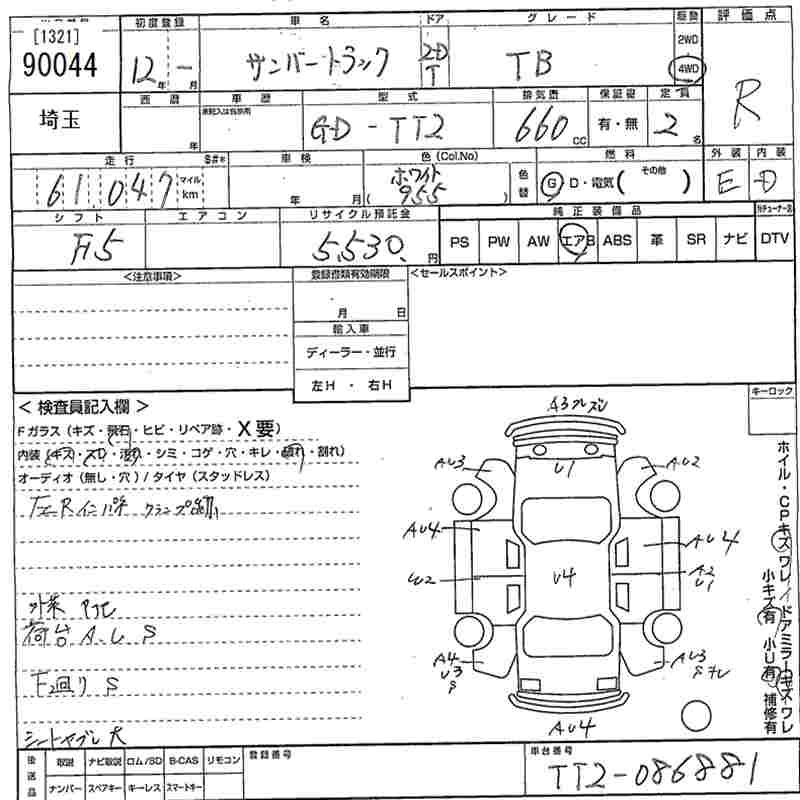 [1321]
90044
埼玉
初度登録
12年 - 月
車名
サンバートラック
ドア
2D
T
グレード
TB
駆動
2WD
4WD
評価点
R
西暦
年
車歴
型式
GD-TT2
排気量
660cc
保証書
有・無
定員
2名
走行
61,047
マイル
km
車検
年 月
色(Col.No)
ホワイト
( 955 )
色替
燃料
G D・電気( その他 )
外装 内装
E D
シフト
F5
エアコン
リサイクル預託金
5,530.円
純正装備品
PS PW AW エアB ABS 革 SR ナビ
DTV
<注意事項>
登録書類有効期限
月 日
輸入車
ディーラー・並行
左H ・ 右H
<セールスポイント>
キーロック
<検査員記入欄>
Fガラス(キズ・飛石・ヒビ・リペア跡・X要)
内装(キズ・スレ・汚れ・シミ・コゲ・穴・キレ・破れ・割れ)
オーディオ(無し・穴)/タイヤ(スタッドレス)
荷台 A.U S
F2回り S
シートヤブレ大
A3カレズレ
U1
AU3
AU2
AU4
AU4
U2
A2
U1
U4
A4
U3
S
AU3
AU4
ホイル・CPキズワレ/ドアミラーキズ・ワレ
小キズ有 小U有 補修有
後送品
取説 ナビ取説 ロム/SD B-CAS リモコン
ナンバー スペアキー キーレス スマートキー
登録番号
車台番号
TT2-086881